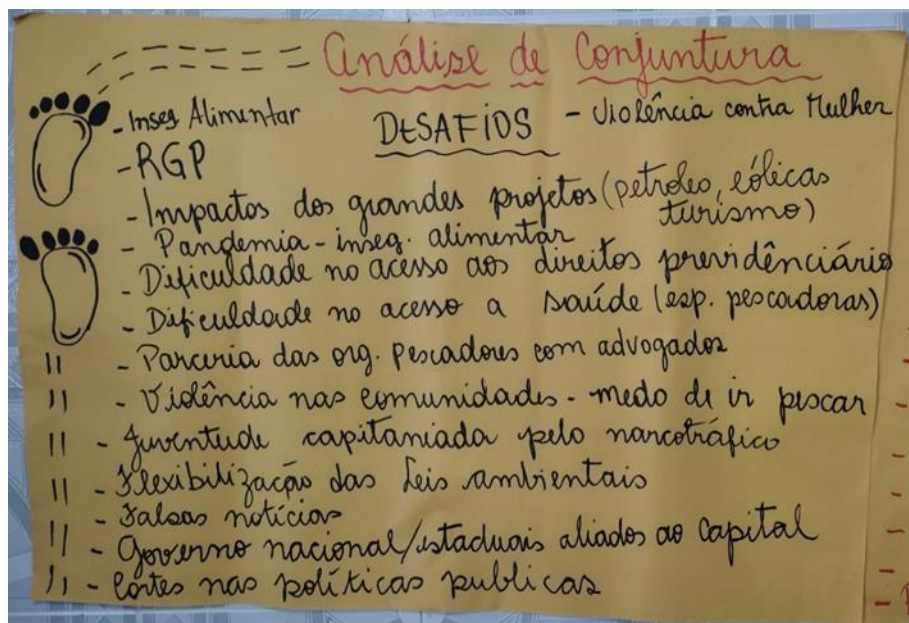 Análise de Conjuntura
- Inseg Alimentar
DESAFIOS
- Violência contra Mulher
- RGP
- Impactos dos grandes projetos (petroleo, eólicas
turísmo)
- Pandemia - inseg. alimentar
- Dificuldade no acesso aos direitos previdênciário
- Dificuldade no acesso a saúde (esp. pescadoras)
- Parceria das org. pescadores com advogados
- Violência nas comunidades - medo de ir pescar
- Juventude capitaniada pelo narcotráfico
- Flexibilização das Leis ambientais
- Falsas notícias
- Governo nacional/estaduais aliados ao Capital
- Cortes nas políticas publicas